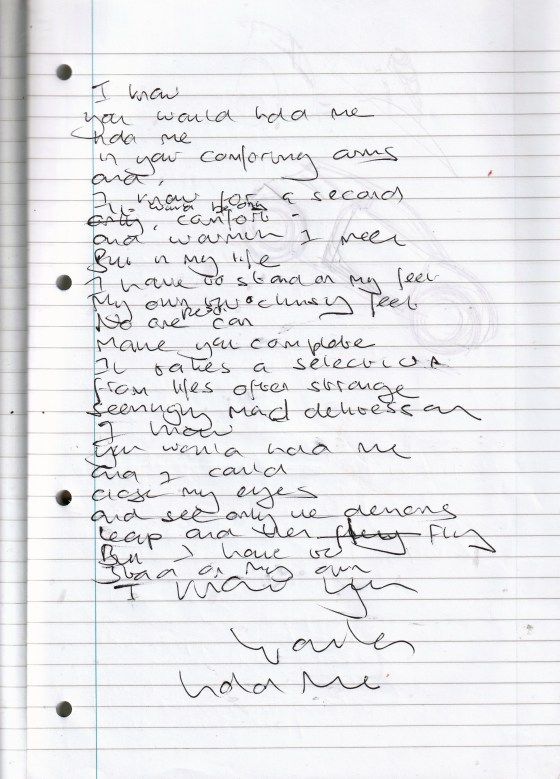 I know
you would hold me
hold me
in your comforing arms
and,
I know for a second
It would bring
only comfort
and warmth I need
But in my life
I have to stand on my feet
My own two clumsy feet
No one person can
Make you complete
It takes a selection
from lifes often strange
seemingly mad delicatessan
I know
you would hold me
and I could
close my eyes
and see only the demons
leap and then fly
But I have to
Stand on my own
I know you
would
hold me